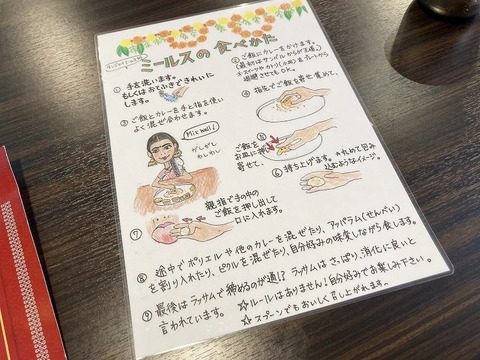 ミールスの食べかた
① 手を洗います。
もしくはおてふきできれいに
します。
② ご飯にカレーをかけます。
(最初はサンバルからが王道。)
※スイーツやカトリ(小皿)をプレートから
退避させてもOK。
③ ご飯とカレーを手と指を使い
よく混ぜ合わせます。
Mix well!
④ 指先でご飯を寄せ集めて、
⑤ ご飯を
お皿に押し
寄せて、
⑥ 持ち上げます。※丸めて包み
込むようなイメージ。
⑦ 親指で手の中の
ご飯を押し出して
口に入れます。
⑧ 途中でポリエルや他のカレーを混ぜたり、アッパラム(せんべい)
を割り入れたり、ピクルを混ぜたり、自分好みの味変しながら食します。
⑨ 最後はラッサムで締めるのが通!? ラッサムはさっぱり、消化に良いと
言われています。
☆ルールはありません!自分好みでお楽しみ下さい。
☆スプーンでもおいしく召し上がれます。